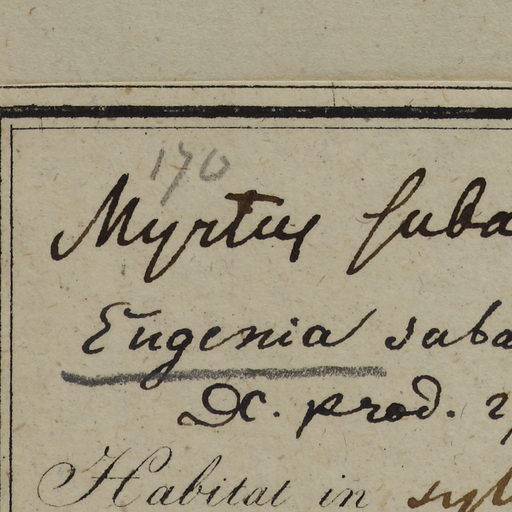 170
Myrtus suba
Eugenia suba
DC. prod.
Habitat in sylv